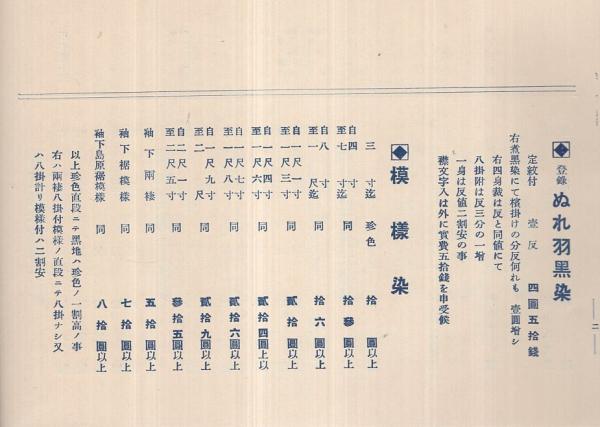 登録 ぬれ羽黒染
定紋付 壹反 四圓五拾錢
右煮黒染にて檳掛けの分反何れも 壹圓增シ
右四身裁は反と同値にて
八掛附は反三分の一增
一身は反値二割安の事
襟文字入は外に實費五拾錢を申受候
模樣染
三寸迄 珍色 拾圓以上
自四寸至七寸迄 同 拾參圓以上
自八寸至一尺迄 同 拾六圓以上
自一尺一寸至一尺三寸 同 貳拾圓以上
自一尺四寸至一尺六寸 同 貳拾四圓上以
自一尺七寸至一尺八寸 同 貳拾六圓以上
自一尺九寸至二尺 同 貳拾九圓以上
自二尺一寸至二尺五寸 同 參拾五圓以上
袖下兩褄 同 五拾圓以上
袖下裾模樣 同 七拾圓以上
袖下島原裾模樣 同 八拾圓以上
以上珍色直段ニテ黑地ハ珍色ノ一割高ノ事
右ハ兩褄八掛付模樣ノ直段ニテ八掛ナシ又
ハ八掛計リ模樣付ハ二割安
二